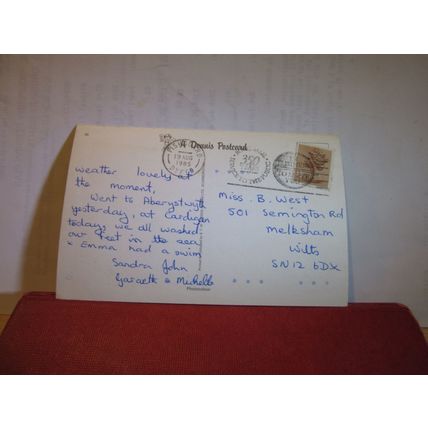 A Dennis Postcard
FISHGUARD
19 AUG
1985
DYFED
350
weather lovely at
the moment,
Went to Aberystwyth
yesterday, at Cardigan
today, we all washed
our feet in the sea
& Emma had a swim
Sandra John
Gareth & Michelle
Miss. B. West
501 Semington Rd
Melksham
Wilts
SN12 6DX